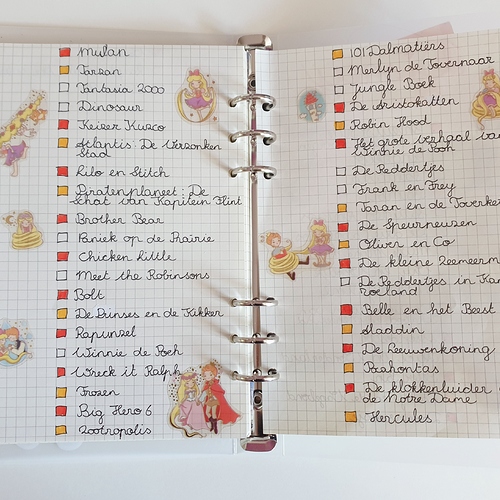 Mulan
Tarzan
Fantasia 2000
Dinosaur
Keizer Kuzco
Atlantis: De Verzonken
Stad
Lilo en Stitch
Piratenplaneet: De
Schat van Kapitein Flint
Brother Bear
Paniek op de Prairie
Chicken Little
Meet the Robinsons
Bolt
De Prinses en de Kikker
Rapunzel
Winnie de Poeh
Wreck it Ralph
Frozen
Big Hero 6
Zootropolis
101 Dalmatiërs
Merlijn de Tovenaar
Jungle Boek
De Aristokatten
Robin Hood
Het grote verhaal van
Winnie de Poeh
De Reddertjes
Frank en Frey
Taran en de Toverke
De Speurneuzen
Oliver en Co
De kleine Zeemeerm
De Reddertjes in Kan
roeland
Belle en het Beest
Aladdin
De Leeuwenkoning
Pocahontas
De klokkenluider
de Notre Dame
Hercules